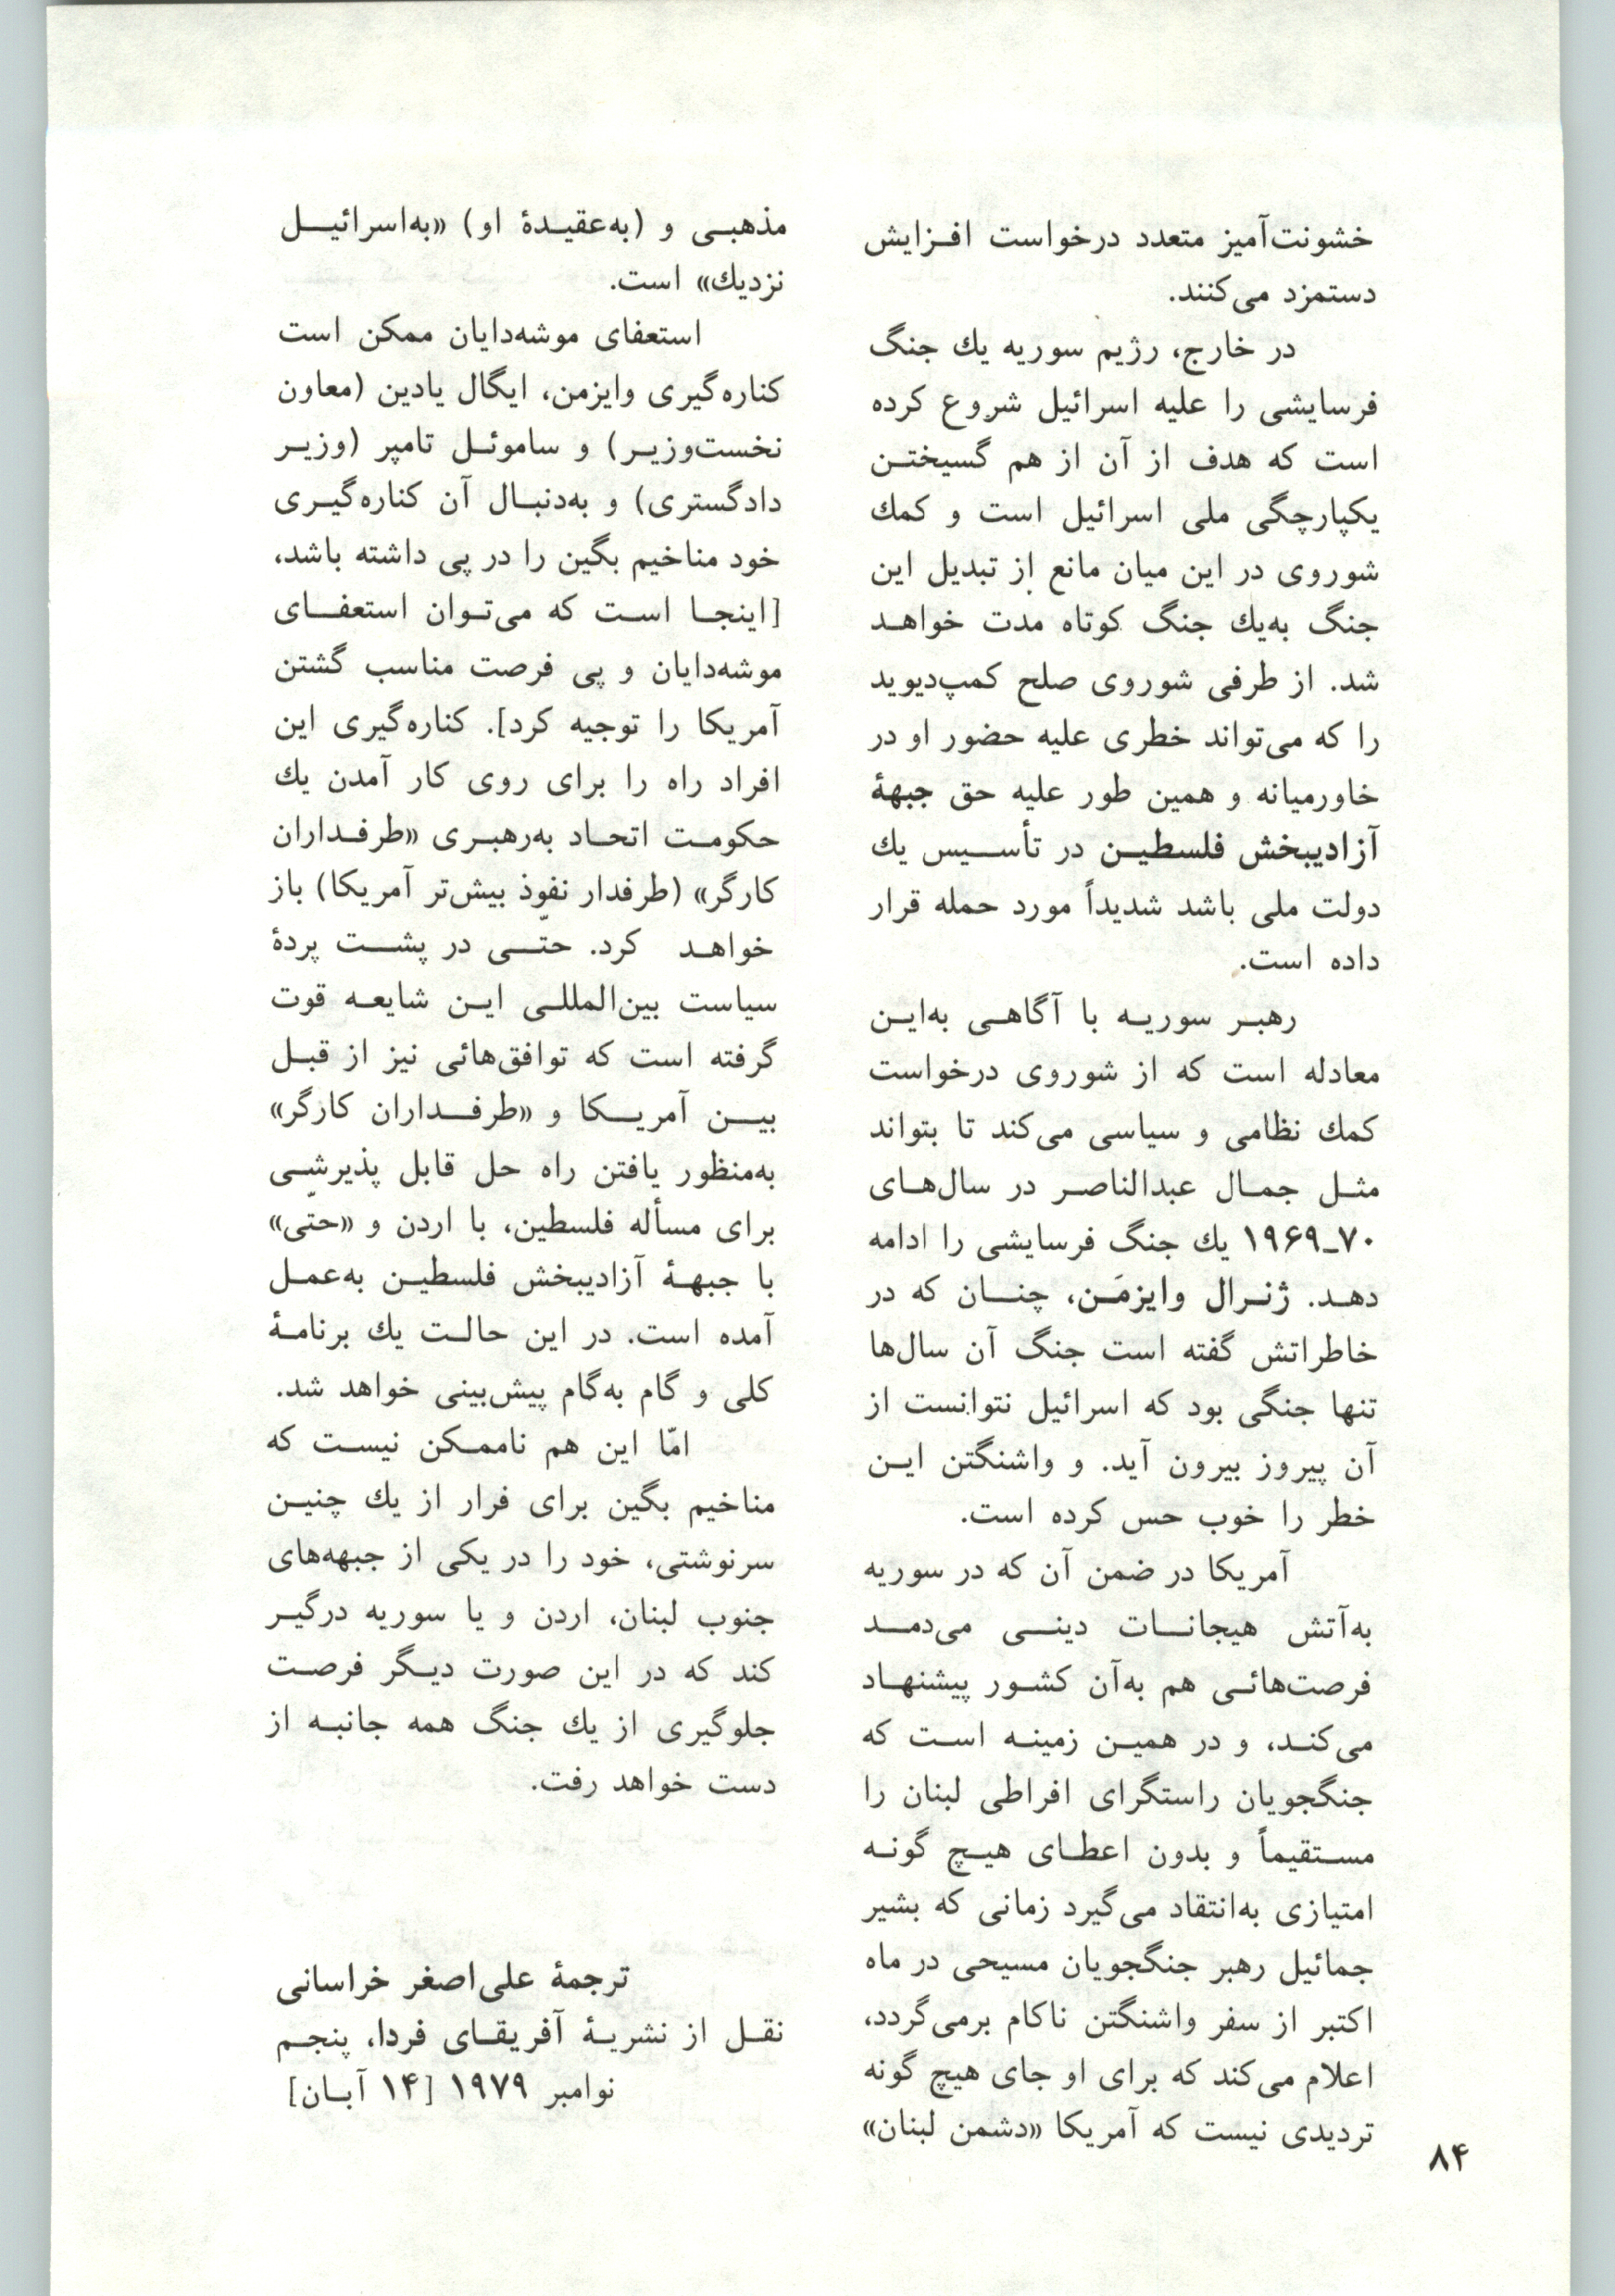 خشونت‌آمیز متعدد درخواست افزایش
دستمزد می‌کنند.
در خارج، رژیم سوریه یك جنگ
فرسایشی را علیه اسرائیل شروع کرده
است که هدف از آن از هم گسیختن
یکپارچگی ملی اسرائیل است و کمك
شوروی در این میان مانع از تبدیل این
جنگ به‌یك جنگ کوتاه مدت خواهد
شد. از طرفی شوروی صلح کمپ‌دیوید
را که می‌تواند خطری علیه حضور او در
خاورمیانه و همین طور علیه حق جبههٔ
آزادیبخش فلسطین در تأسیس یك
دولت ملی باشد شدیداً مورد حمله قرار
داده است.
رهبر سوریه با آگاهی به‌این
معادله است که از شوروی درخواست
کمك نظامی و سیاسی می‌کند تا بتواند
مثل جمال عبدالناصر در سال‌های
۷۰ـ۱۹۶۹ یك جنگ فرسایشی را ادامه
دهد. ژنرال وایزمَن، چنان که در
خاطراتش گفته است جنگ آن سال‌ها
تنها جنگی بود که اسرائیل نتوانست از
آن پیروز بیرون آید. و واشنگتن این
خطر را خوب حس کرده است.
آمریکا در ضمن آن که در سوریه
به‌آتش هیجانات دینی می‌دمد
فرصت‌هائی هم به‌آن کشور پیشنهاد
می‌کند، و در همین زمینه است که
جنگجویان راستگرای افراطی لبنان را
مستقیماً و بدون اعطای هیچ گونه
امتیازی به‌انتقاد می‌گیرد زمانی که بشیر
جمائیل رهبر جنگجویان مسیحی در ماه
اکتبر از سفر واشنگتن ناکام برمی‌گردد،
اعلام می‌کند که برای او جای هیچ گونه
تردیدی نیست که آمریکا «دشمن لبنان»
مذهبی و (به‌عقیدهٔ او) «به‌اسرائیل
نزدیك» است.
استعفای موشه‌دایان ممکن است
کناره‌گیری وایزمن، ایگال یادین (معاون
نخست‌وزیر) و ساموئل تامپر (وزیر
دادگستری) و به‌دنبال آن کناره‌گیری
خود مناخیم بگین را در پی داشته باشد،
[اینجا است که می‌توان استعفای
موشه‌دایان و پی فرصت مناسب گشتن
آمریکا را توجیه کرد]. کناره‌گیری این
افراد راه را برای روی کار آمدن یك
حکومت اتحاد به‌رهبری «طرفداران
کارگر» (طرفدار نفوذ بیش‌تر آمریکا) باز
خواهد کرد. حتّی در پشت پردهٔ
سیاست بین‌المللی این شایعه قوت
گرفته است که توافق‌هائی نیز از قبل
بین آمریکا و «طرفداران کارگر»
به‌منظور یافتن راه حل قابل پذیرشی
برای مسأله فلسطین، با اردن و «حتّی»
با جبههٔ آزادیبخش فلسطین به‌عمل
آمده است. در این حالت یك برنامهٔ
کلی و گام به‌گام پیش‌بینی خواهد شد.
امّا این هم ناممکن نیست که
مناخیم بگین برای فرار از یك چنین
سرنوشتی، خود را در یکی از جبهه‌های
جنوب لبنان، اردن و یا سوریه درگیر
کند که در این صورت دیگر فرصت
جلوگیری از یك جنگ همه جانبه از
دست خواهد رفت.
ترجمهٔ علی‌اصغر خراسانی
نقل از نشریهٔ آفریقای فردا، پنجم
نوامبر ۱۹۷۹ [۱۴ آبان]
۸۴